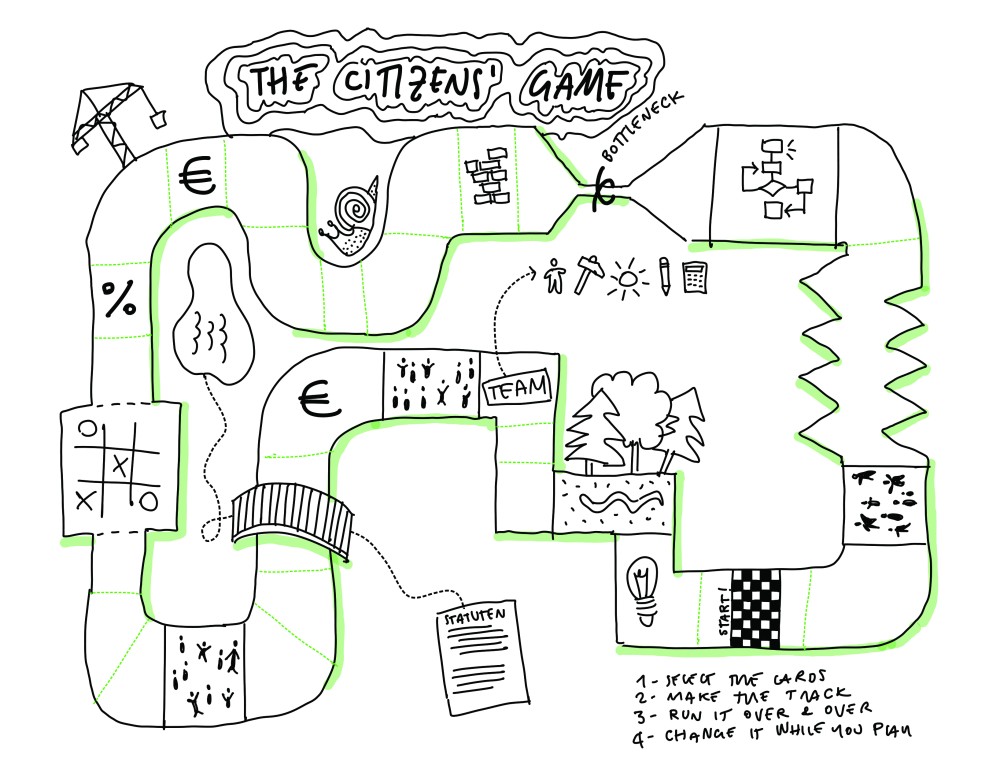 THE CITIZENS' GAME
BOTTLENECK
€
%
O
X
X O
€
TEAM
STATUTEN
START!
1- SELECT THE CARDS
2- MAKE THE TRACK
3- RUN IT OVER & OVER
4- CHANGE IT WHILE YOU PLAY